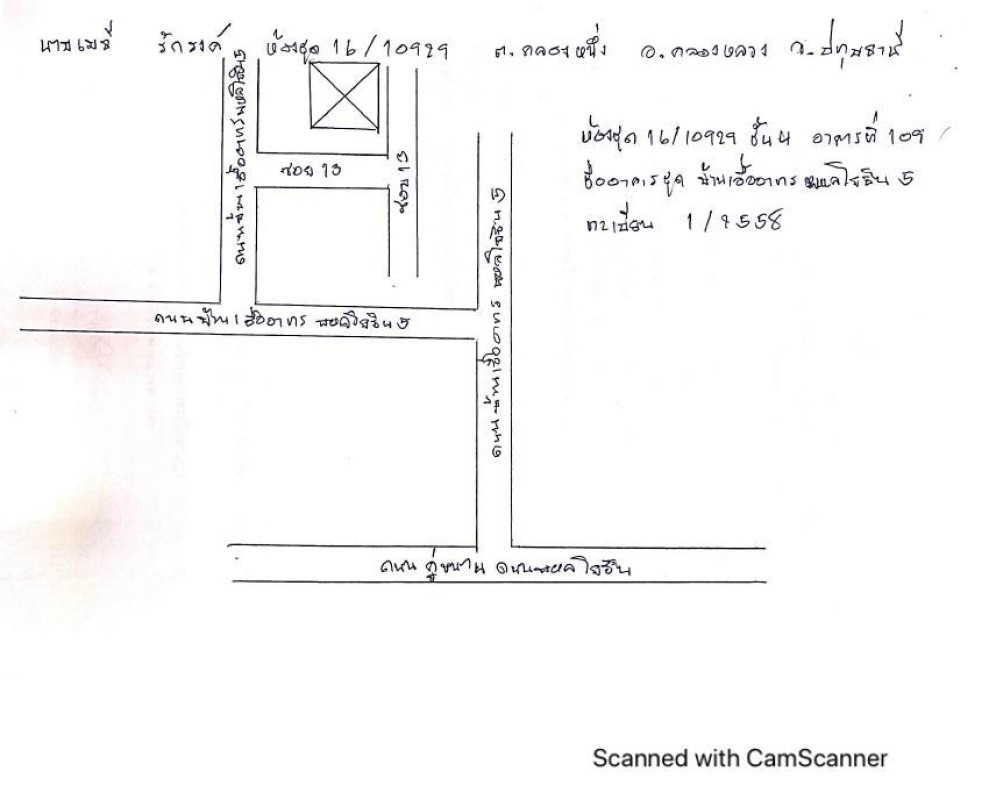 นายเมธี รักรงค์ ห้องชุด 16/10929 ต.คลองหนึ่ง อ.คลองหลวง จ.ปทุมธานี
ห้องชุด 16/10929 ชั้น 4 อาคารที่ 109
ชื่ออาคารชุด บ้านเอื้ออาทร พหลโยธิน 5
ทะเบียน 1/2558
ถนนบ้านเอื้ออาทรพหลโยธิน 5
ซอย 13
ซอย 15
ถนนบ้านเอื้ออาทร พหลโยธิน 5
ถนนบ้านเอื้ออาทร พหลโยธิน 5
ถนนคู่ขนาน ถนนพหลโยธิน
Scanned with CamScanner